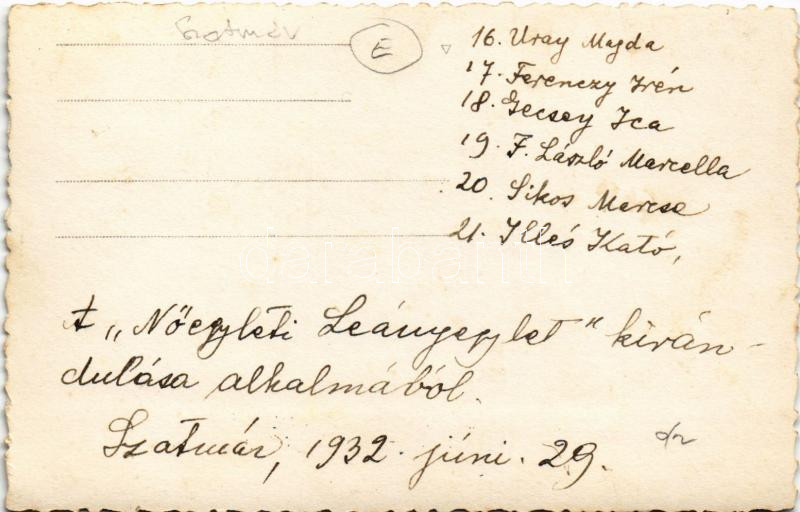 Szatmár
E
16. Uray Magda
17. Ferenczy Irén
18. Gecsey Ica
19. F. László Marcella
20. Sikos Marcsa
21. Illés Kató,
A „Nőegyleti Leányegylet" kirán-
dulása alkalmából.
Szatmár, 1932. júni. 29.
darabanth